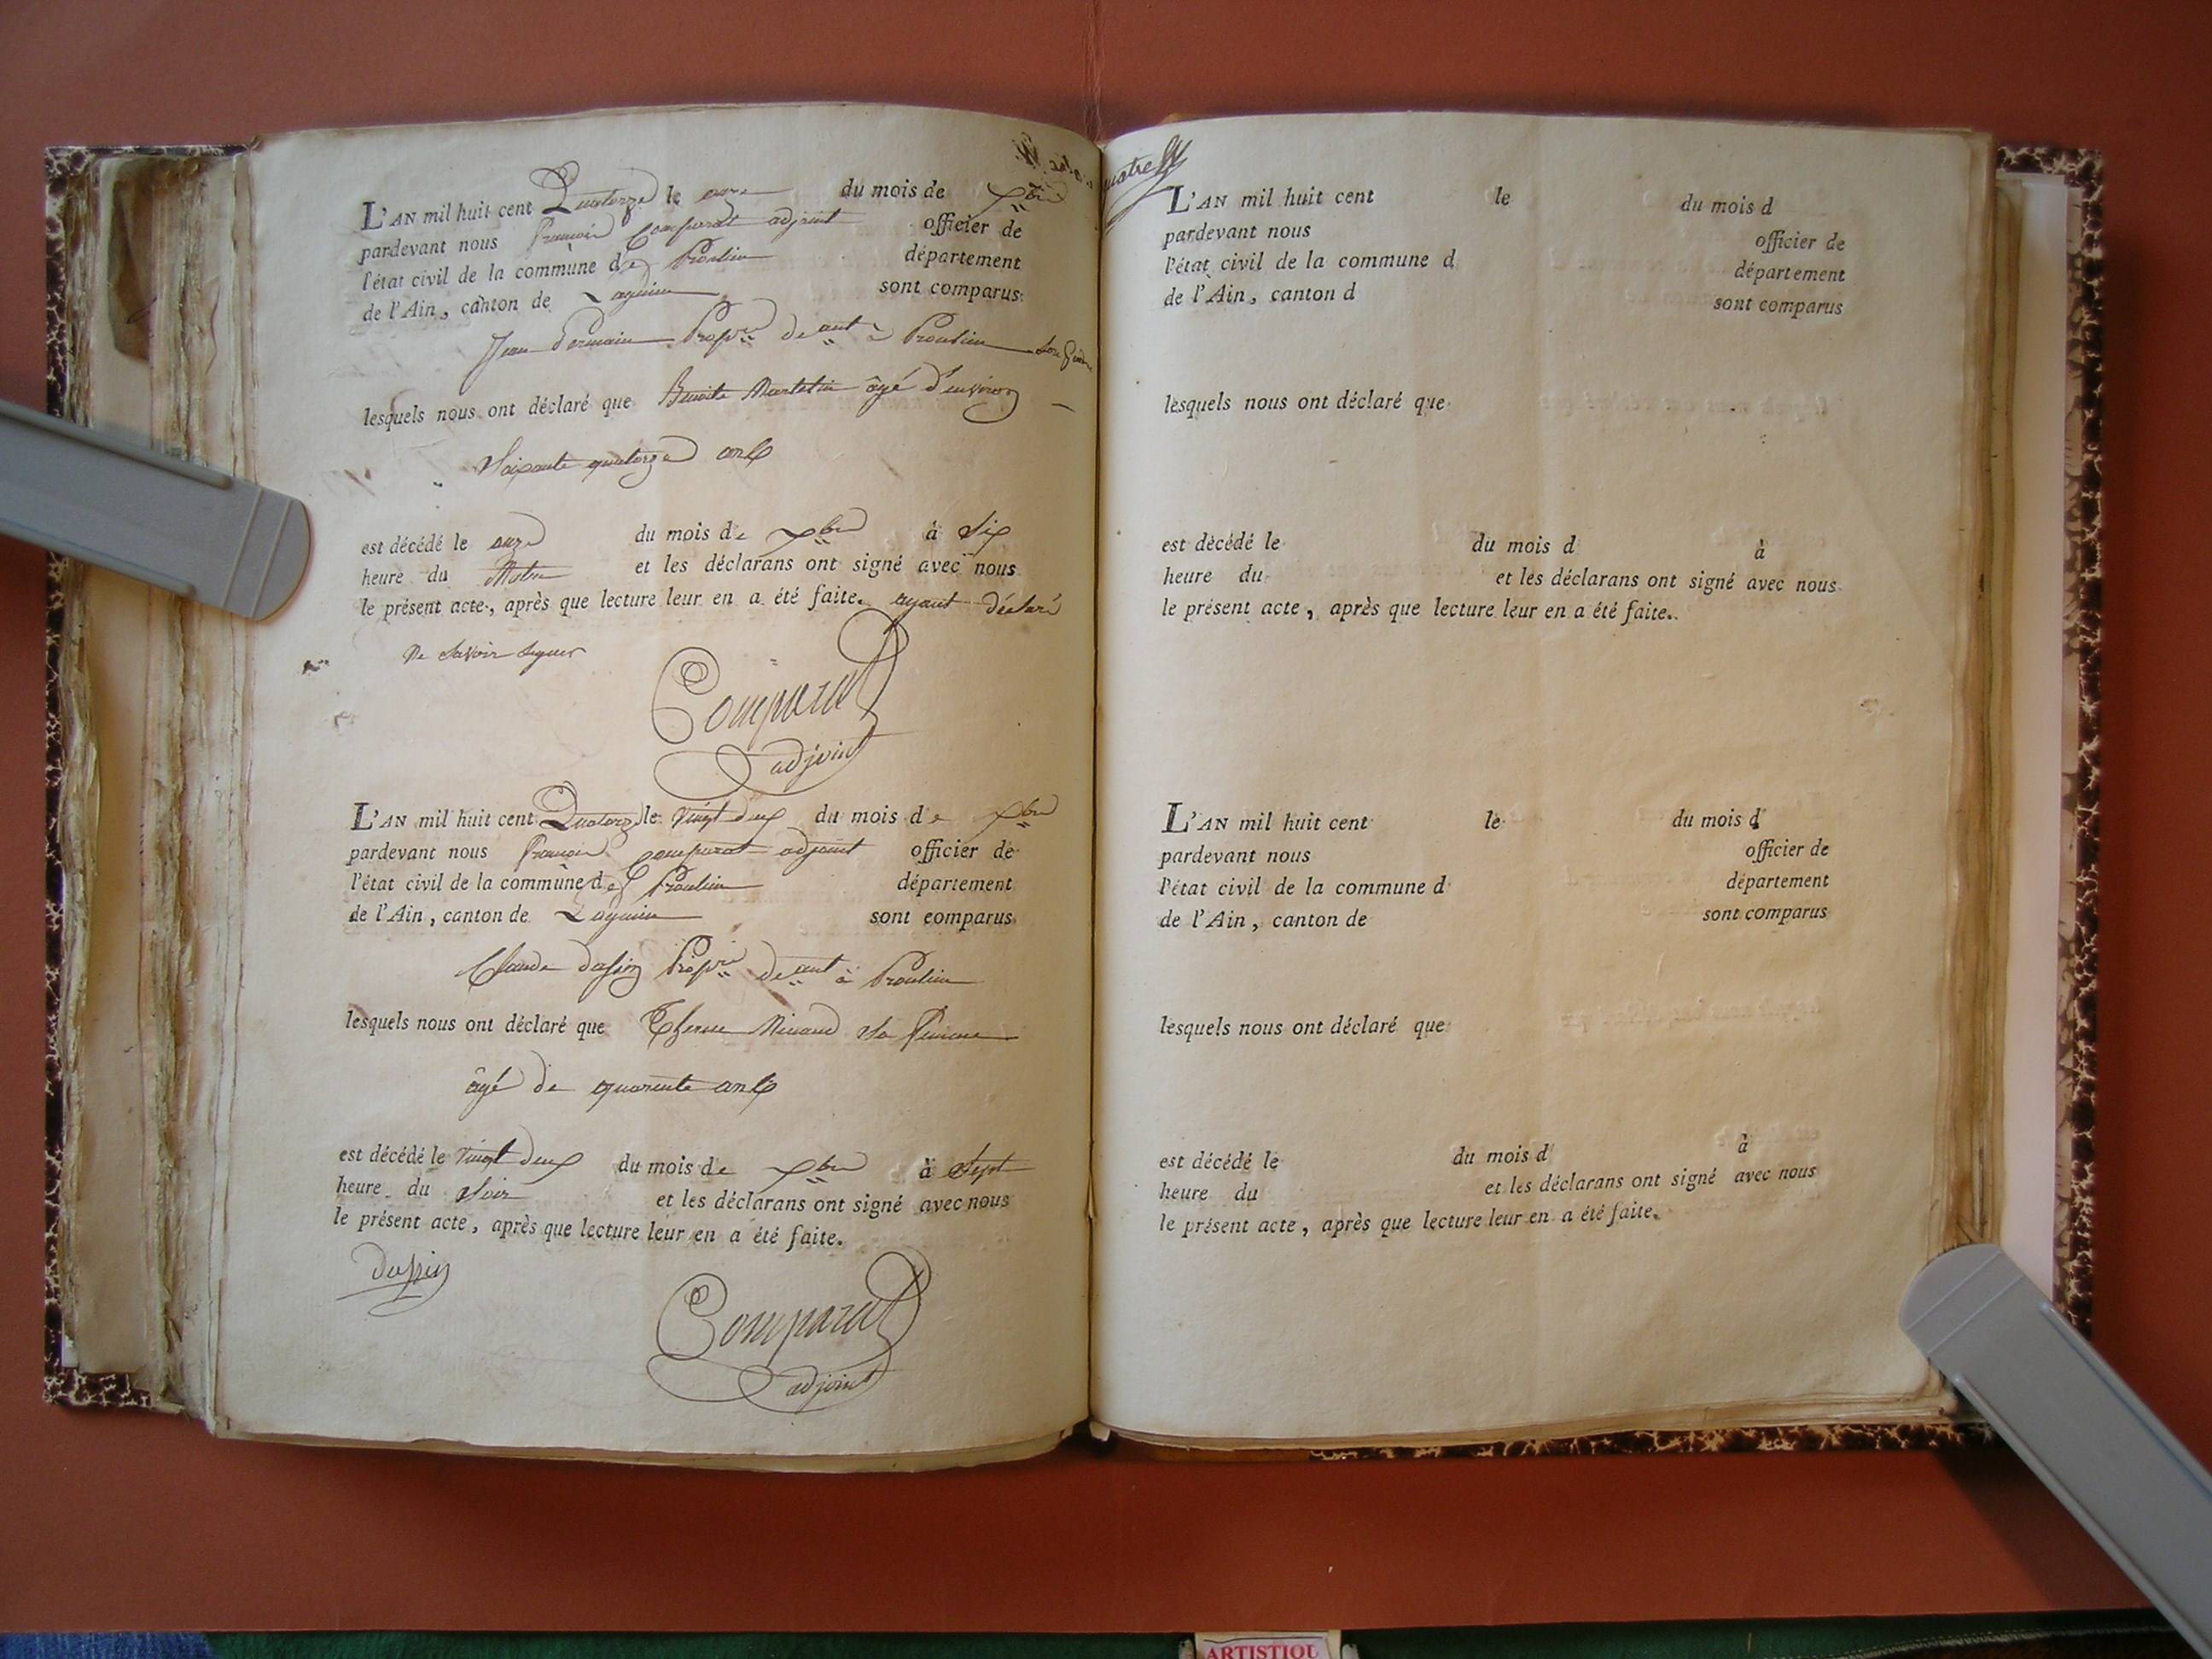 L'AN mil huit cent Quatorze le onze du mois de xbre
pardevant nous François Comparat adjoint officier de
l'état civil de la commune de Proulieu département
de l'Ain, canton de Lagnieu sont comparus
Jean Germain Propre deant à Proulieu son Gendre
lesquels nous ont déclaré que Benoite Martelin âgé d'environ
Soixante quatorze ans
est décédé le onze du mois de xbre à six
heure du Matin et les déclarans ont signé avec nous
le présent acte, après que lecture leur en a été faite. ayant déclaré
Ne savoir signer
Comparat
adjoint
L'AN mil huit cent Quatorze le vingt deux du mois de xbre
pardevant nous François Comparat adjoint officier de
l'état civil de la commune de Proulieu département
de l'Ain, canton de Lagnieu sont comparus
Claude dassin Propre deant à Proulieu
lesquels nous ont déclaré que sa femme
âgé de quarente ans
est décédé le vingt deux du mois de xbre à sept
heure du soir et les déclarans ont signé avec nous
le présent acte, après que lecture leur en a été faite.
dassin
Comparat
adjoint
quatre
L'AN mil huit cent le du mois d
pardevant nous officier de
l'état civil de la commune d département
de l'Ain, canton d sont comparus
lesquels nous ont déclaré que
est décédé le du mois d à
heure du et les déclarans ont signé avec nous
le présent acte, après que lecture leur en a été faite.
L'AN mil huit cent le du mois d
pardevant nous officier de
l'état civil de la commune d département
de l'Ain, canton de sont comparus
lesquels nous ont déclaré que
est décédé le du mois d à
heure du et les déclarans ont signé avec nous
le présent acte, après que lecture leur en a été faite.
ARTISTIQU